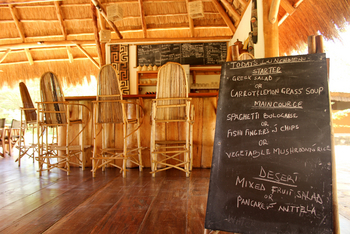 TODAYS LUNCH MENU
STARTER
GREEK SALAD
OR
CARROT/LEMON GRASS SOUP
MAIN COURGE
SPAGHETTI BOLOGNASE
OR
FISH FINGERS N CHIPS
OR
VEGETABLE MUSHROOM RICE
DESERT
MIXED FRUIT SALAD
OR
PANCAKE N NUTTELA